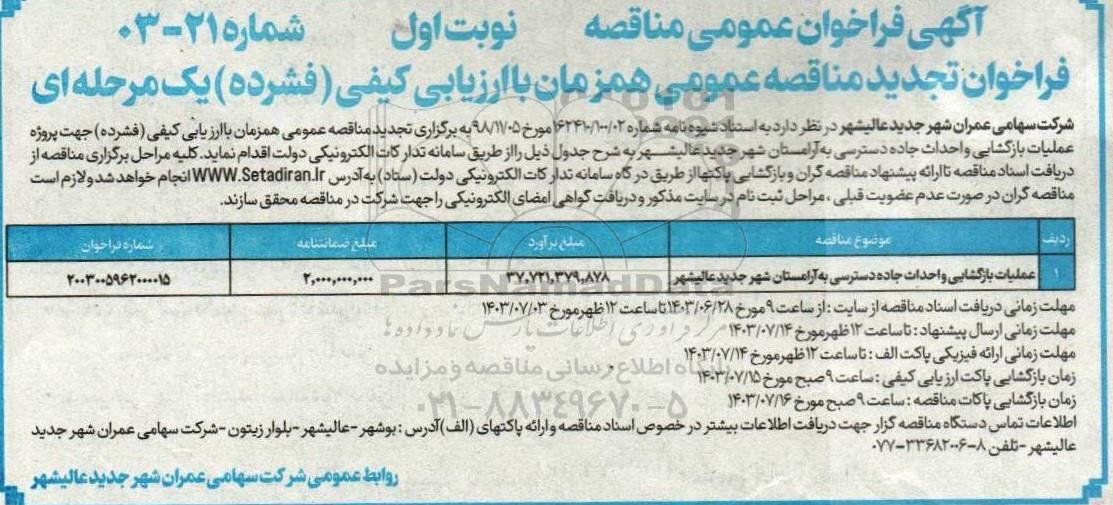 آگهی فراخوان عمومی مناقصه نوبت اول شماره ۲۱-۰۳
فراخوان تجدید مناقصه عمومی همزمان با ارزیابی کیفی (فشرده) یک مرحله ای
شرکت سهامی عمران شهر جدید عالیشهر در نظر دارد به استناد شیوه نامه شماره ۱۶۲۴۱۰/۱۰۰/۰۲ مورخ ۹۸/۱۱/۰۵ به برگزاری تجدید مناقصه عمومی همزمان با ارزیابی کیفی (فشرده) جهت پروژه
عملیات بازگشایی و احداث جاده دسترسی به آرامستان شهر جدید عالیشهر به شرح جدول ذیل را از طریق سامانه تدارکات الکترونیکی دولت اقدام نماید. کلیه مراحل برگزاری مناقصه از
دریافت اسناد مناقصه تا ارائه پیشنهاد مناقصه گران و بازگشایی پاکتها از طریق درگاه سامانه تدارکات الکترونیکی دولت (ستاد) به آدرس WWW.Setadiran.Ir انجام خواهد شد و لازم است
مناقصه گران در صورت عدم عضویت قبلی ، مراحل ثبت نام در سایت مذکور و دریافت گواهی امضای الکترونیکی را جهت شرکت در مناقصه محقق سازند.
ردیف موضوع مناقصه مبلغ برآورد مبلغ ضمانتنامه شماره فراخوان
۱ عملیات بازگشایی و احداث جاده دسترسی به آرامستان شهر جدید عالیشهر ۳۷,۷۲۱,۳۷۹,۸۷۸ ۲,۰۰۰,۰۰۰,۰۰۰ ۲۰۰۳۰۰۵۹۶۲۰۰۰۰۱۵
ParsNamadData
مهلت زمانی دریافت اسناد مناقصه از سایت : از ساعت ۹ مورخ ۱۴۰۳/۰۶/۲۸ تا ساعت ۱۲ ظهر مورخ ۱۴۰۳/۰۷/۰۳
مهلت زمانی ارسال پیشنهاد : تا ساعت ۱۲ ظهر مورخ ۱۴۰۳/۰۷/۱۴
مرکز فرآوری اطلاعات پارس نماد داده ها
مهلت زمانی ارائه فیزیکی پاکت الف : تا ساعت ۱۲ ظهر مورخ ۱۴۰۳/۰۷/۱۴
پایگاه اطلاع رسانی مناقصه و مزایده
زمان بازگشایی پاکت ارزیابی کیفی : ساعت ۹ صبح مورخ ۱۴۰۳/۰۷/۱۵
زمان بازگشایی پاکات مناقصه : ساعت ۹ صبح مورخ ۱۴۰۳/۰۷/۱۶
۰۲۱-۸۸۳۴۹۶۷۰-۵
اطلاعات تماس دستگاه مناقصه گزار جهت دریافت اطلاعات بیشتر در خصوص اسناد مناقصه و ارائه پاکتهای (الف) آدرس : بوشهر - عالیشهر - بلوار زیتون - شرکت سهامی عمران شهر جدید
عالیشهر - تلفن ۸-۰۷۷-۳۳۶۸۲۰۰۶
روابط عمومی شرکت سهامی عمران شهر جدید عالیشهر